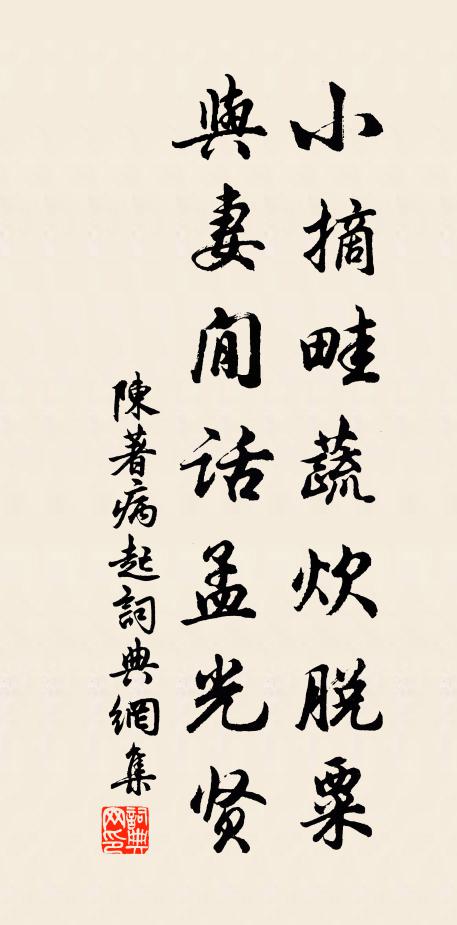 小摘畦蔬炊脱粟
與妻閒話孟光贤
陳著病起詞典網集
詞典网印